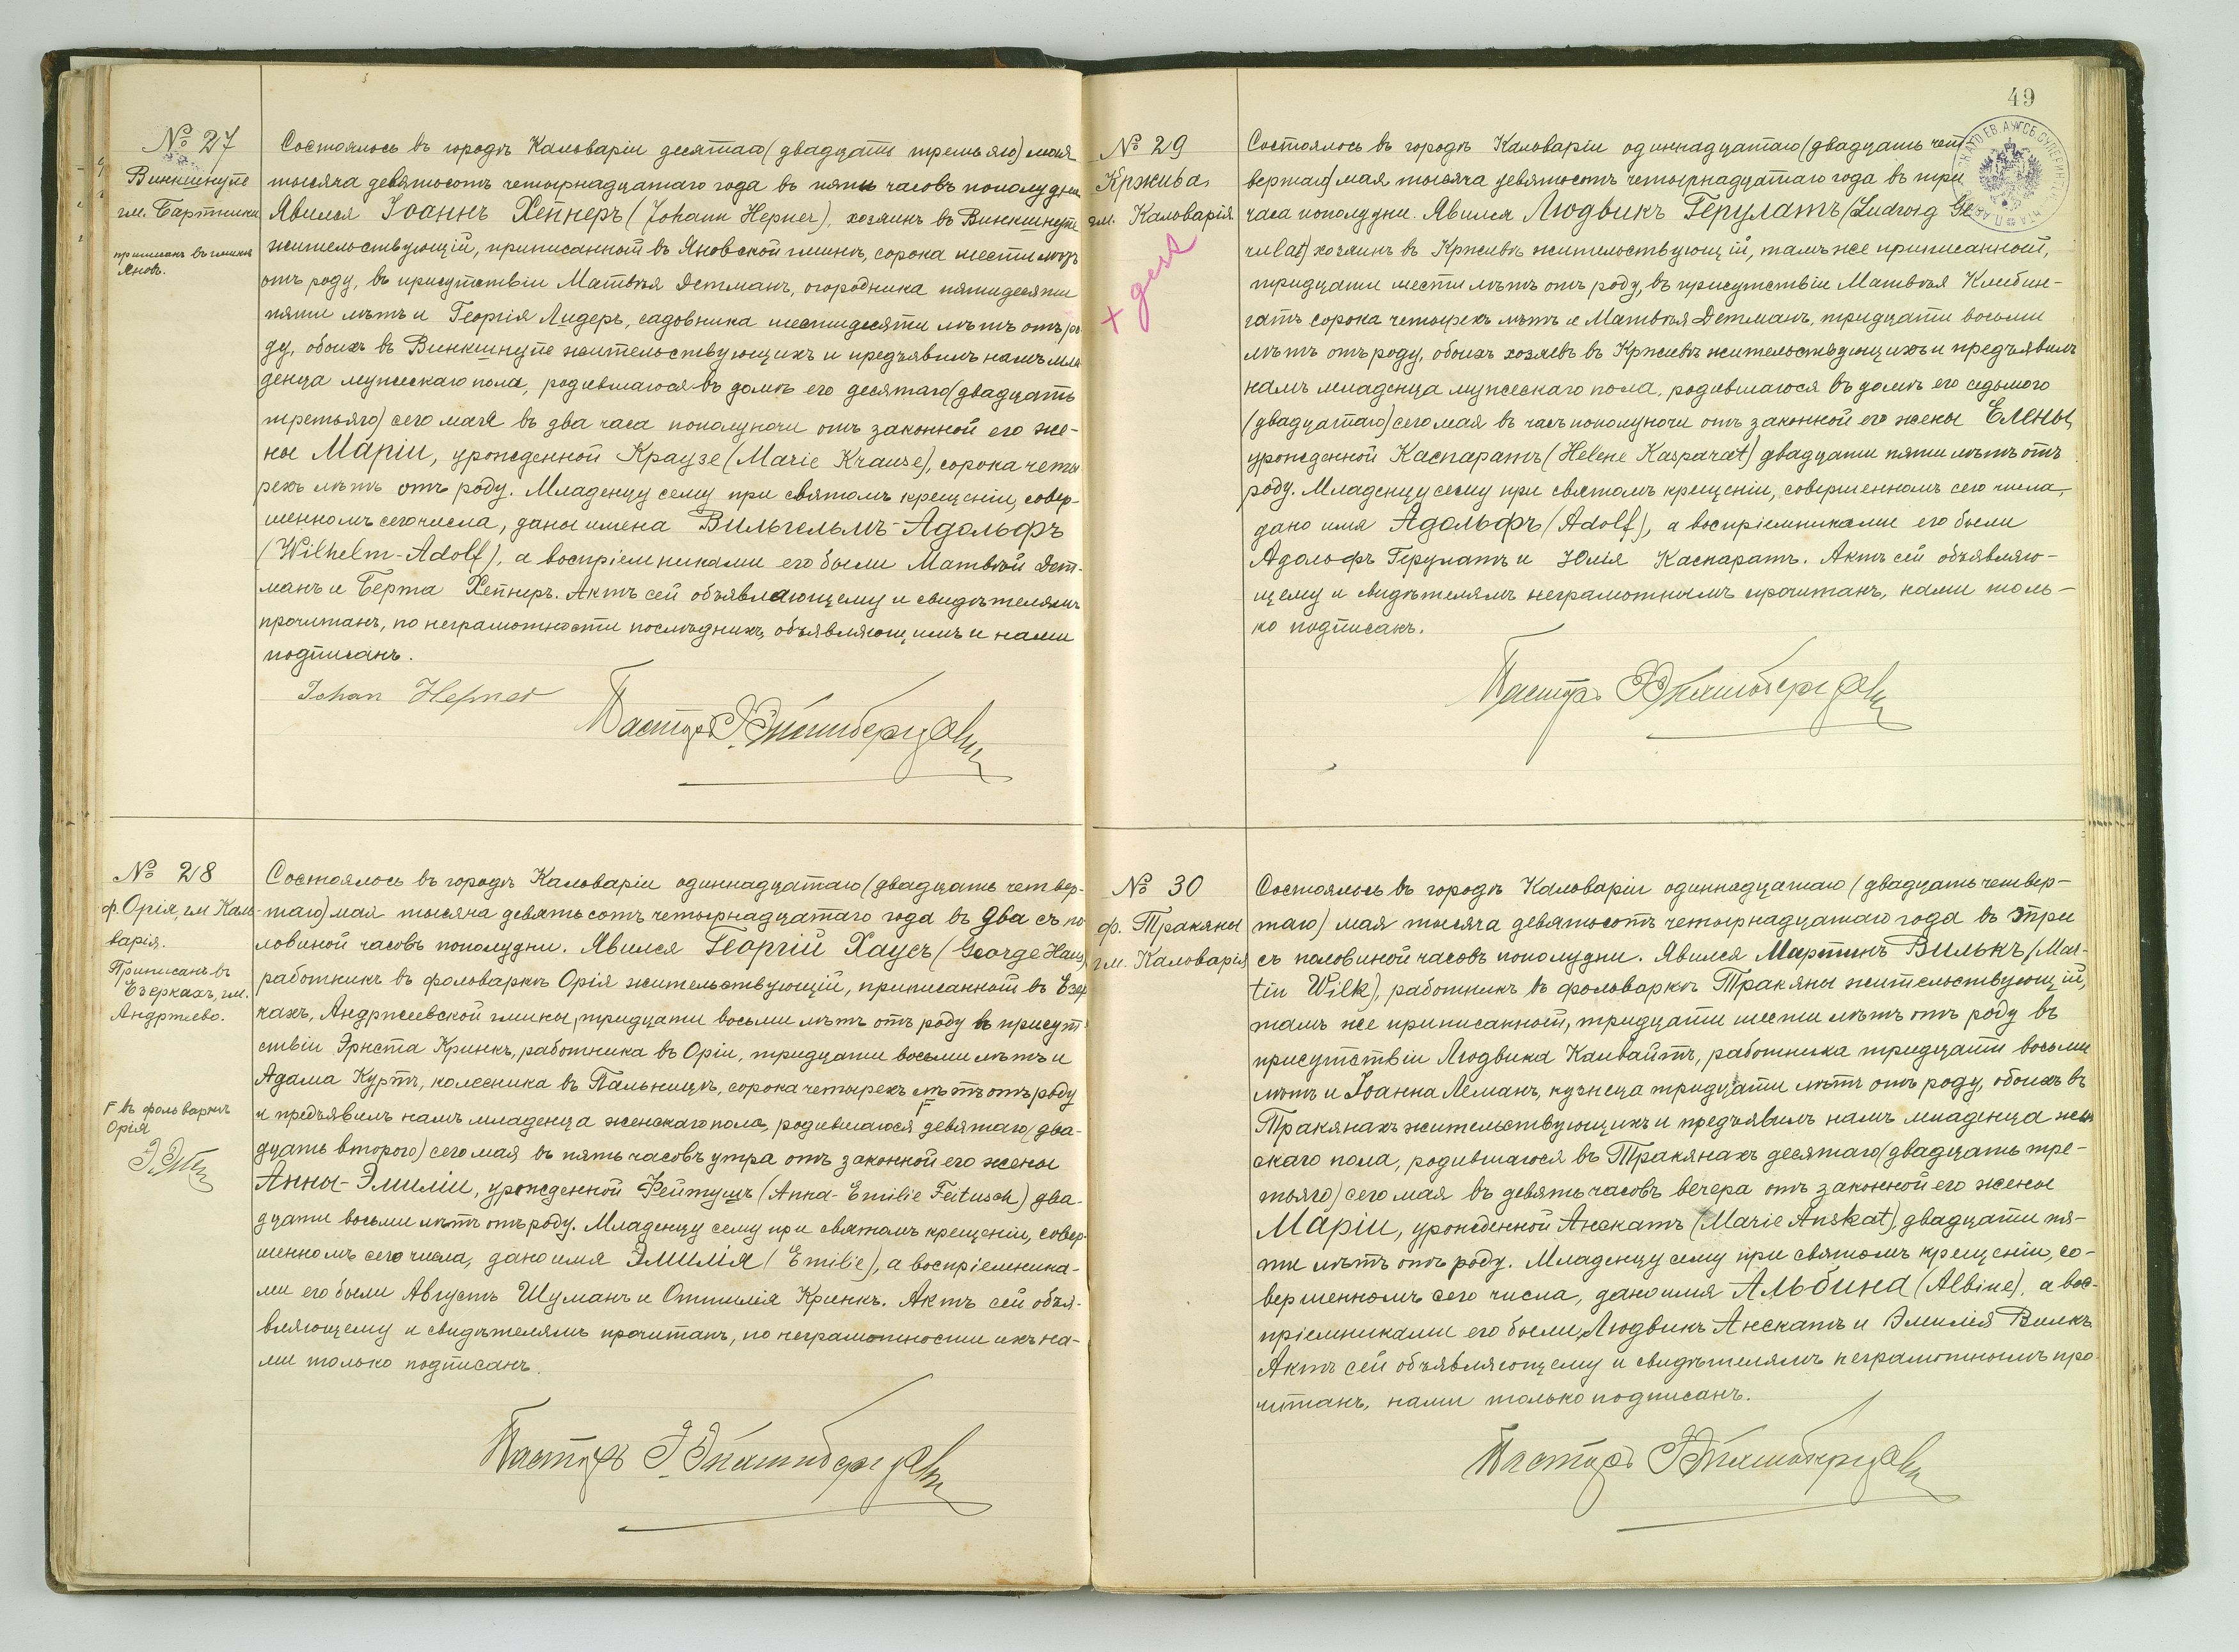 № 27
Винкшнупе
гм. Бартники
приписанъ въ гминѣ
Яновъ.
Состоялось въ городѣ Кальваріи десятаго (двадцать третьяго) мая
тысяча девятьсотъ четырнадцатаго года въ пять часовъ пополудни
Явился Іоаннъ Хепнеръ (Johann Hepner), хозяинъ въ Винкшнупе
жительствующій, приписанный въ Яновской гминѣ, сорока шести лѣтъ
отъ роду, въ присутствіи Матвѣя Детманъ, огородника пятидесяти
пяти лѣтъ и Георгія Лидеръ, садовника шестидесяти лѣтъ отъ ро-
ду, обоихъ въ Винкшнупе жительствующихъ и предъявилъ намъ мла
денца мужескаго пола, родившагося въ домѣ его десятаго (двадцать
третьяго) сего мая въ два часа пополуночи отъ законной его же-
ны Маріи, урожденной Краузе (Marie Krause), сорока четы
рехъ лѣтъ отъ роду. Младенцу сему при святомъ крещеніи, совер-
шенномъ сего числа, даны имена Вильгельмъ-Адольфъ
(Wilhelm-Adolf), а воспріемниками его были Матвѣй Дет-
манъ и Берта Хепнеръ. Актъ сей объявляющему и свидѣтелямъ
прочитанъ, по неграмотности послѣднихъ, объявляющимъ и нами
подписанъ.
Johan Hepner
Пасторъ
№ 28
ф. Орія, гм. Каль-
варія.
Приписанъ въ
Езеркахъ, гм.
Андржево.
Г въ фольваркѣ
Орія
Состоялось въ городѣ Кальваріи одиннадцатаго (двадцать четвер-
таго) мая тысяча девятьсотъ четырнадцатаго года въ два съ по
ловиной часовъ пополудни. Явился Георгій Хаусъ (George Haus)
работникъ въ фольваркѣ Орія жительствующій, приписанный въ Езер
кахъ, Андржеевской гмины, тридцати восьми лѣтъ отъ роду въ присут
ствіи Эрнста Кринкъ, работника въ Оріи, тридцати восьми лѣтъ и
Адама Куртъ, колесника въ Пальницѣ, сорока четырехъ лѣтъ отъ роду
и предъявилъ намъ младенца женскаго пола, родившагося Г девятаго (два-
дцать второго) сего мая въ пять часовъ утра отъ законной его жены
Анны-Эмиліи, урожденной Фейтушъ (Anna-Emilie Feitusch) два-
дцати восьми лѣтъ отъ роду. Младенцу сему при святомъ крещеніи, совер-
шенномъ сего числа, дано имя Эмилія (Emilie), а воспріемника-
ми его были Августъ Шуманъ и Оттилія Кринкъ. Актъ сей объя-
вляющему и свидѣтелямъ прочитанъ, по неграмотности ихъ на-
ми только подписанъ.
Пасторъ
49
№ 29
Кржива
гм. Кальварія
+ gest
Состоялось въ городѣ Кальваріи одиннадцатаго (двадцать чет
вертаго) мая тысяча девятьсотъ четырнадцатаго года въ три
часа пополудни. Явился Людвикъ Герулатъ (Ludwig Ge
rulat) хозяинъ въ Крживѣ жительствующій, тамъ же приписанный,
тридцати шести лѣтъ отъ роду, въ присутствіи Матвѣя Клибин-
гатъ сорока четырехъ лѣтъ и Матвѣя Детманъ, тридцати восьми
лѣтъ отъ роду, обоихъ хозяевъ въ Крживѣ жительствующихъ и предъявилъ
намъ младенца мужескаго пола, родившагося въ домѣ его седьмого
(двадцатаго) сего мая въ часъ пополуночи отъ законной его жены Елены,
урожденной Каспаратъ (Helene Kasparat) двадцати пяти лѣтъ отъ
роду. Младенцу сему при святомъ крещеніи, совершенномъ сего числа,
дано имя Адольфъ (Adolf), а воспріемниками его были
Адольфъ Герулатъ и Юлія Каспаратъ. Актъ сей объявляю-
щему и свидѣтелямъ неграмотнымъ прочитанъ, нами толь-
ко подписанъ.
Пасторъ
№ 30
ф. Тракяны
гм. Кальварія
Состоялось въ городѣ Кальваріи одиннадцатаго (двадцать четвер-
таго) мая тысяча девятьсотъ четырнадцатаго года въ три
съ половиной часовъ пополудни. Явился Мартинъ Вилькъ (Mar-
tin Wilk), работникъ въ фольваркѣ Тракяны жительствующій,
тамъ же приписанный, тридцати шести лѣтъ отъ роду въ
присутствіи Людвика Канвайтъ, работника тридцати восьми
лѣтъ и Іоанна Леманъ, кузнеца тридцати лѣтъ отъ роду, обоихъ въ
Тракянахъ жительствующихъ и предъявилъ намъ младенца жен
скаго пола, родившагося въ Тракянахъ десятаго (двадцать тре-
тьяго) сего мая въ девять часовъ вечера отъ законной его жены
Маріи, урожденной Анскатъ (Marie Anskat), двадцати пя-
ти лѣтъ отъ роду. Младенцу сему при святомъ крещеніи, со-
вершенномъ сего числа, дано имя Альбина (Albine), а вос-
пріемниками его были Людвикъ Анскатъ и Эмилія Вилкъ
Актъ сей объявляющему и свидѣтелямъ неграмотнымъ про
читанъ, нами только подписанъ.
Пасторъ